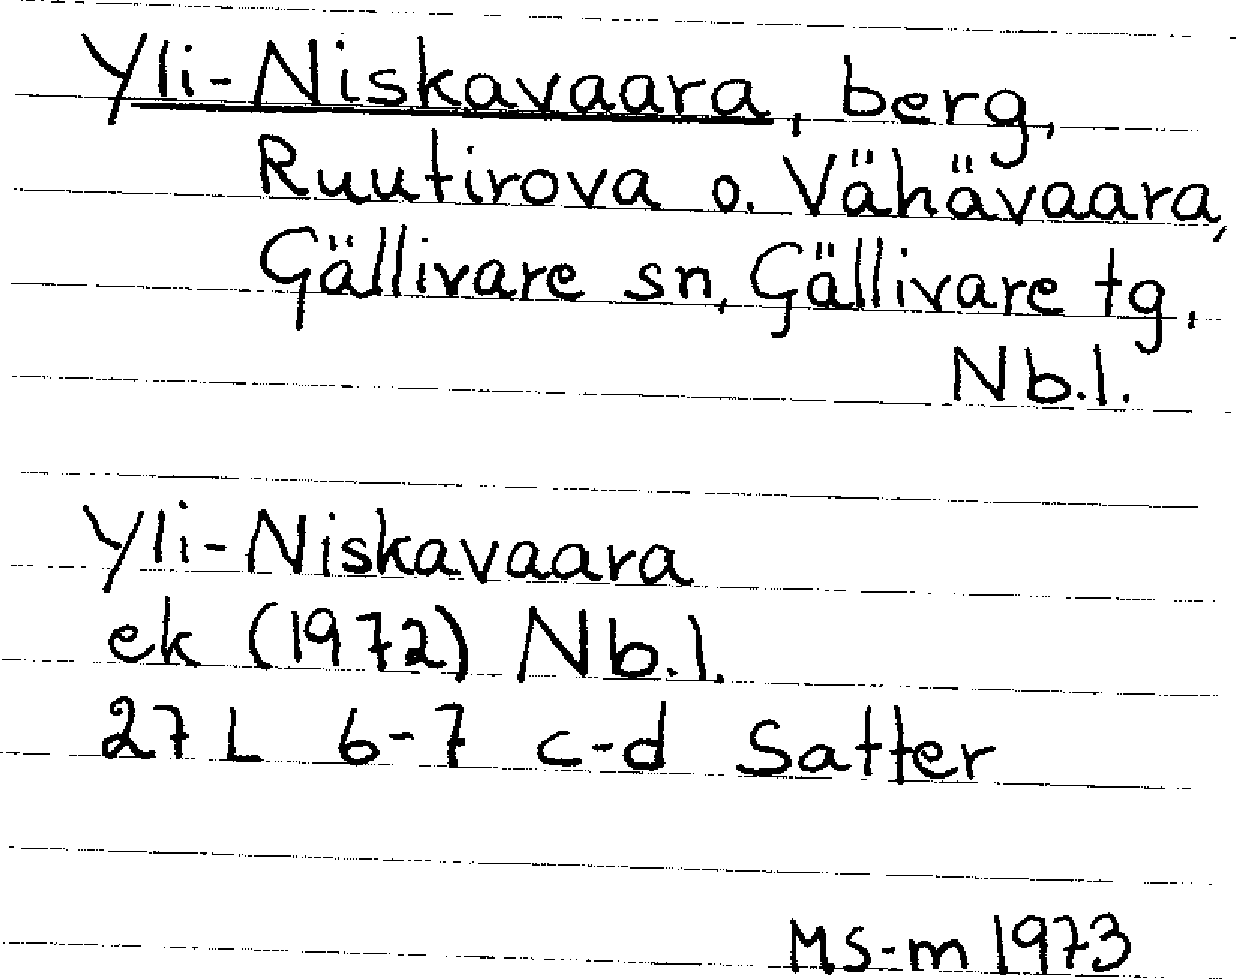 Yli-Niskavaara, berg,
Ruutirova o. Vähävaara,
Gällivare sn, Gällivare tg,
Nb.l.
Yli-Niskavaara
ek (1972) Nb.l.
27L 6-7 c-d Satter
MS-m 1973